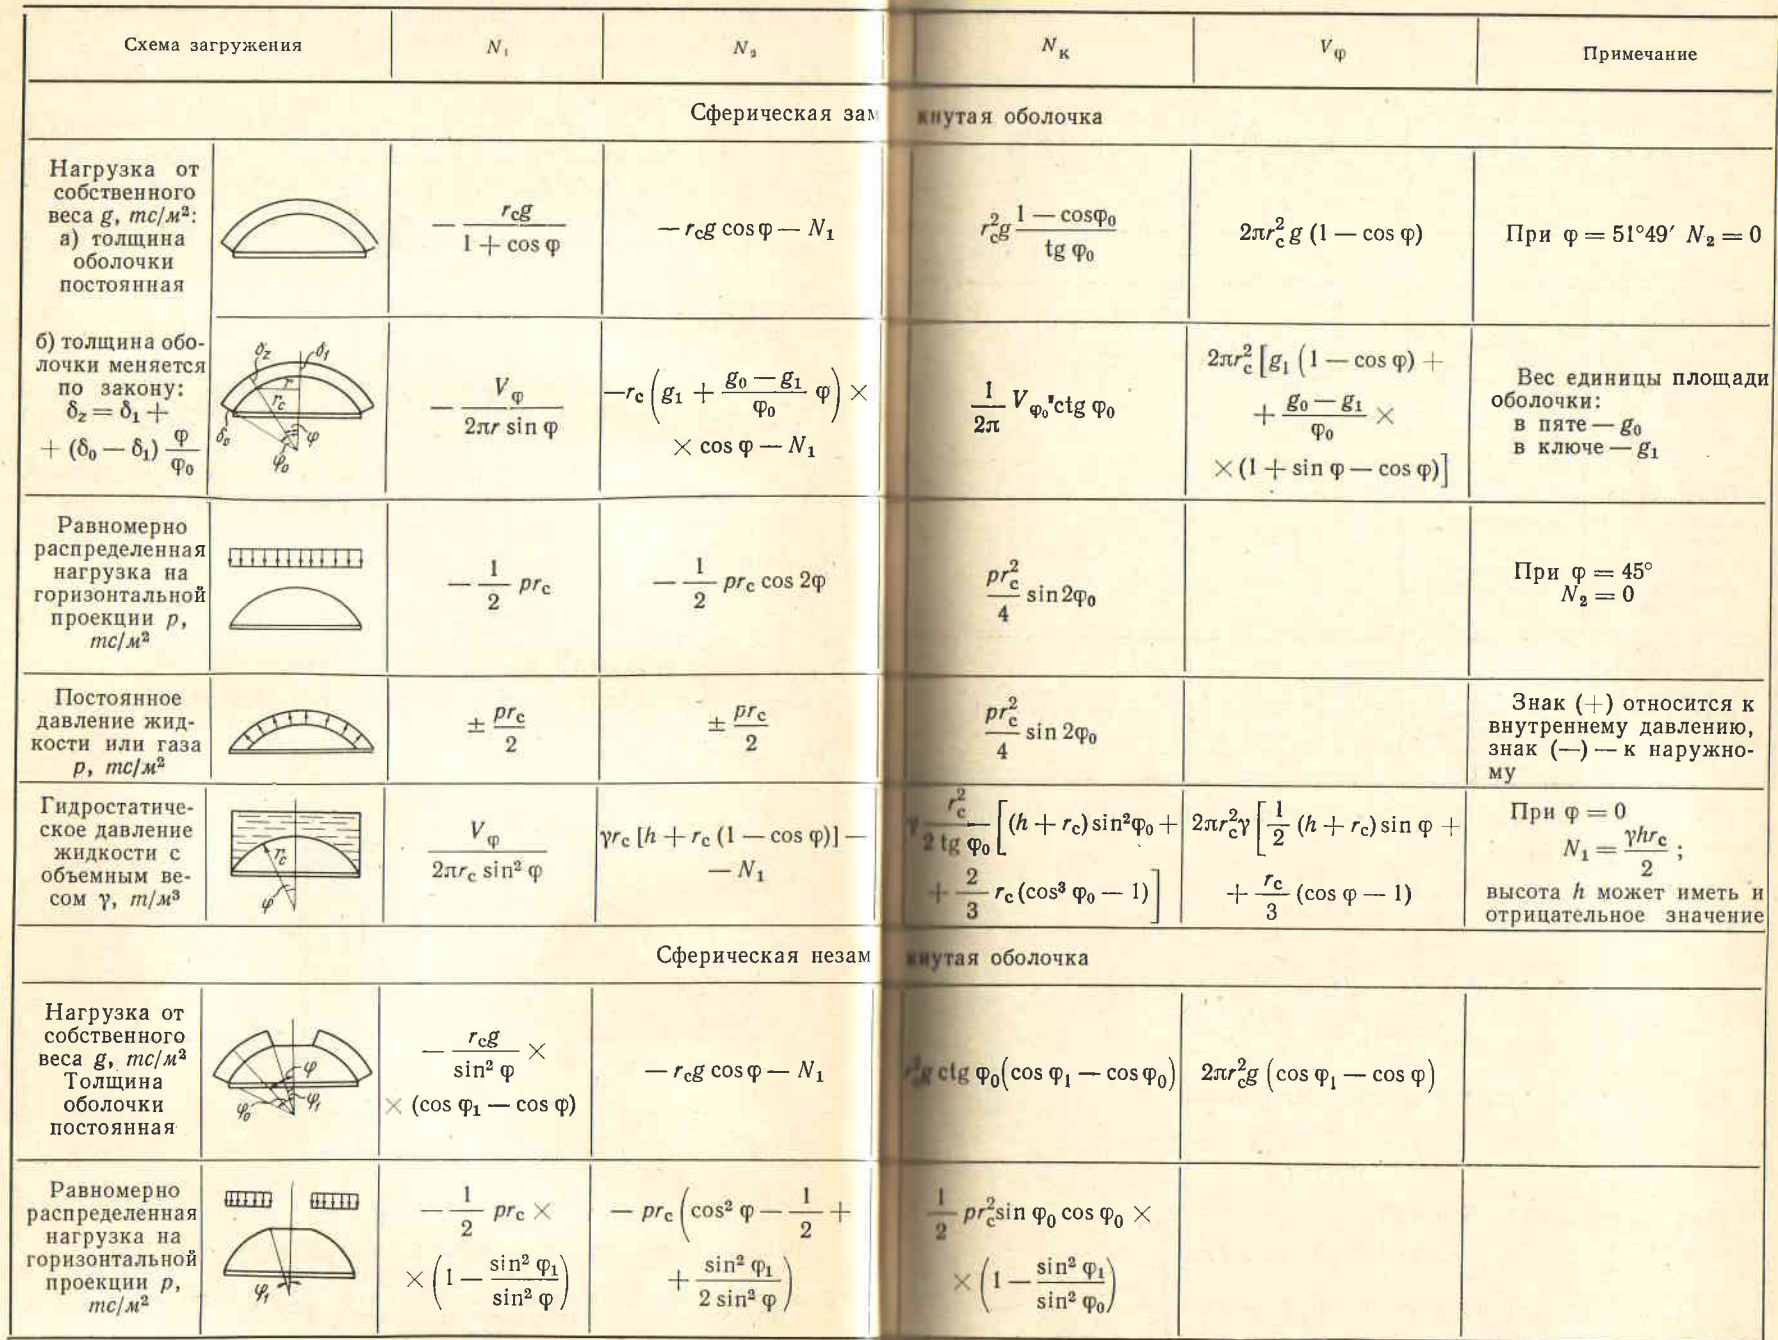 Схема загружения | N₁ | N₂ | N_к | V_φ | Примечание
Сферическая зам кнутая оболочка
Нагрузка от
собственного
веса g, тс/м²:
а) толщина
оболочки
постоянная
− r_c g / (1 + cos φ)
− r_c g cos φ − N₁
r_c² g (1 − cosφ₀) / tg φ₀
2πr_c² g (1 − cos φ)
При φ = 51°49′ N₂ = 0
б) толщина обо-
лочки меняется
по закону:
δ_z = δ₁ +
+ (δ₀ − δ₁) φ/φ₀
δ_z δ₁
r
r_c
δ₀ φ
φ₀
− V_φ / (2πr sin φ)
−r_c (g₁ + (g₀ − g₁)/φ₀ φ) ×
× cos φ − N₁
1/2π V_φ₀ ctg φ₀
2πr_c² [g₁ (1 − cos φ) +
+ (g₀ − g₁)/φ₀ ×
× (1 + sin φ − cos φ)]
Вес единицы площади
оболочки:
в пяте — g₀
в ключе — g₁
Равномерно
распределенная
нагрузка на
горизонтальной
проекции p,
тс/м²
− 1/2 pr_c
− 1/2 pr_c cos 2φ
pr_c²/4 sin 2φ₀
При φ = 45°
N₂ = 0
Постоянное
давление жид-
кости или газа
p, тс/м²
± pr_c/2
± pr_c/2
pr_c²/4 sin 2φ₀
Знак (+) относится к
внутреннему давлению,
знак (—) — к наружно-
му
Гидростатиче-
ское давление
жидкости с
объемным ве-
сом γ, т/м³
r_c
φ
V_φ / (2πr_c sin² φ)
γr_c [h + r_c (1 − cos φ)] −
− N₁
γ r_c²/(2 tg φ₀) [(h + r_c) sin²φ₀ +
+ 2/3 r_c (cos³ φ₀ − 1)]
2πr_c²γ [1/2 (h + r_c) sin φ +
+ r_c/3 (cos φ − 1)
При φ = 0
N₁ = γhr_c/2 ;
высота h может иметь и
отрицательное значение
Сферическая незам кнутая оболочка
Нагрузка от
собственного
веса g, тс/м²
Толщина
оболочки
постоянная
φ
φ₀ φ₁
− r_c g / sin² φ ×
× (cos φ₁ − cos φ)
− r_c g cos φ − N₁
r_c² g ctg φ₀(cos φ₁ − cos φ₀)
2πr_c² g (cos φ₁ − cos φ)
Равномерно
распределенная
нагрузка на
горизонтальной
проекции p,
тс/м²
φ₁
− 1/2 pr_c ×
× (1 − sin² φ₁ / sin² φ)
− pr_c (cos² φ − 1/2 +
+ sin² φ₁ / (2 sin² φ))
1/2 pr_c² sin φ₀ cos φ₀ ×
× (1 − sin² φ₁ / sin² φ₀)